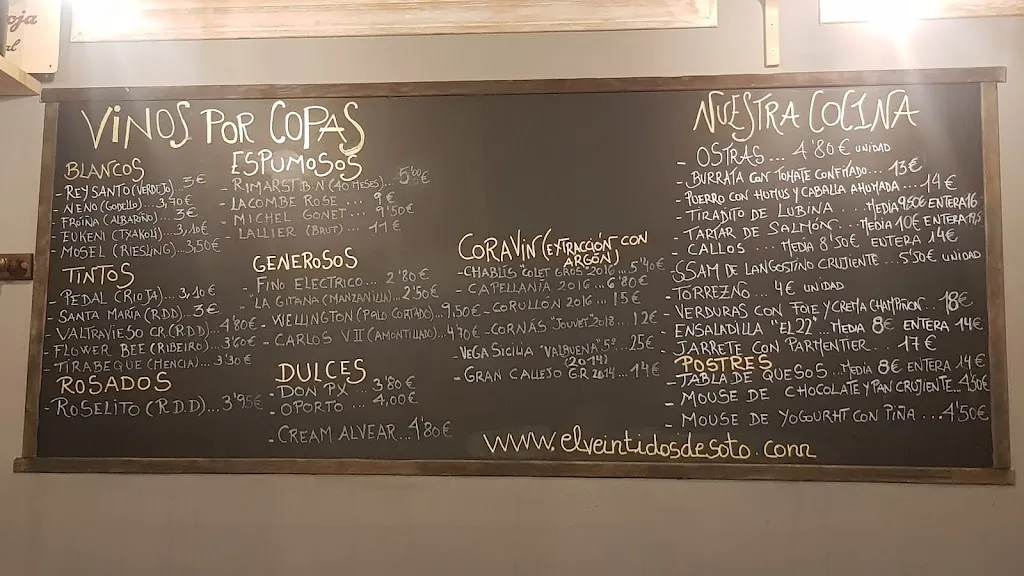 oja
al
VINOS POR COPAS
BLANCOS
- REY SANTO (VERDEJO)...3€
- NENO (GODELLO)...3,40€
- FROIÑA (ALBARIÑO)...3€
- EUKENI (TXAKOLI)...3,10€
- MOSEL (RIESLING)...3,50€
TINTOS
- PEDAL (RIOJA)...3,10€
- SANTA MARÍA (R.D.D)...3€
- VALTRAVIESO CR.(R.D.D)...4'80€
- FLOWER BEE (RIBEIRO)...3'60€
- TIRABEQUE (MENCIA)...3'30€
ROSADOS
- ROSELITO (R.D.D)...3'95€
ESPUMOSOS
- RIMARST B.N (40 MESES)...5'00€
- LACOMBE ROSE ... 9€
- MICHEL GONET ... 9'50€
- LALLIER (BRUT)... 11€
GENEROSOS
- FINO ELECTRICO ... 2'80€
- "LA GITANA (MANZANILLA)...2'50€
- WELLINGTON (PALO CORTADO)...9,50€
- CARLOS VII (AMONTILLADO)...4,70€
DULCES
- DON PX 3'80€
- OPORTO .... 4,00€
- CREAM ALVEAR...4'80€
CORAVIN (EXTRACCIÓN CON
ARGÓN)
- CHABLÍS "COLET GROS 2016...5'40€
- CAPELLANIA 2016...6'80€
- CORULLÓN 2016...15€
- CORNÁS "JOUVET" 2018...12€
- VEGA SICILIA "VALBUENA" 5º...25€
(2014)
- GRAN CALLEJO G.R 2014...14€
www.elveintidosdesoto.com
NUESTRA COCINA
- OSTRAS... 4'80€ UNIDAD
- BURRATA CON TOMATE CONFITADO...13€
- PUERRO CON HUMUS Y CABALLA AHUMADA...14€
- TIRADITO DE LUBINA...MEDIA 9'50€ ENTERA 16
- TARTAR DE SALMÓN...MEDIA 10€ ENTERA 17,5
- CALLOS ... MEDIA 8'50€ ENTERA 14€
- SSAM DE LANGOSTINO CRUJIENTE...5'50€ UNIDAD
- TORREZNO... 4€ UNIDAD
- VERDURAS CON FOIE Y CREMA CHAMPIÑON. 18€
- ENSALADILLA "EL 22" MEDIA 8€ ENTERA 14€
- JARRETE CON PARMENTIER... 17€
POSTRES
- TABLA DE QUESOS...MEDIA 8€ ENTERA 14€
- MOUSE DE CHOCOLATE Y PAN CRUJIENTE. 4'50€
- MOUSE DE YOGOURHT CON PIÑA...4'50€